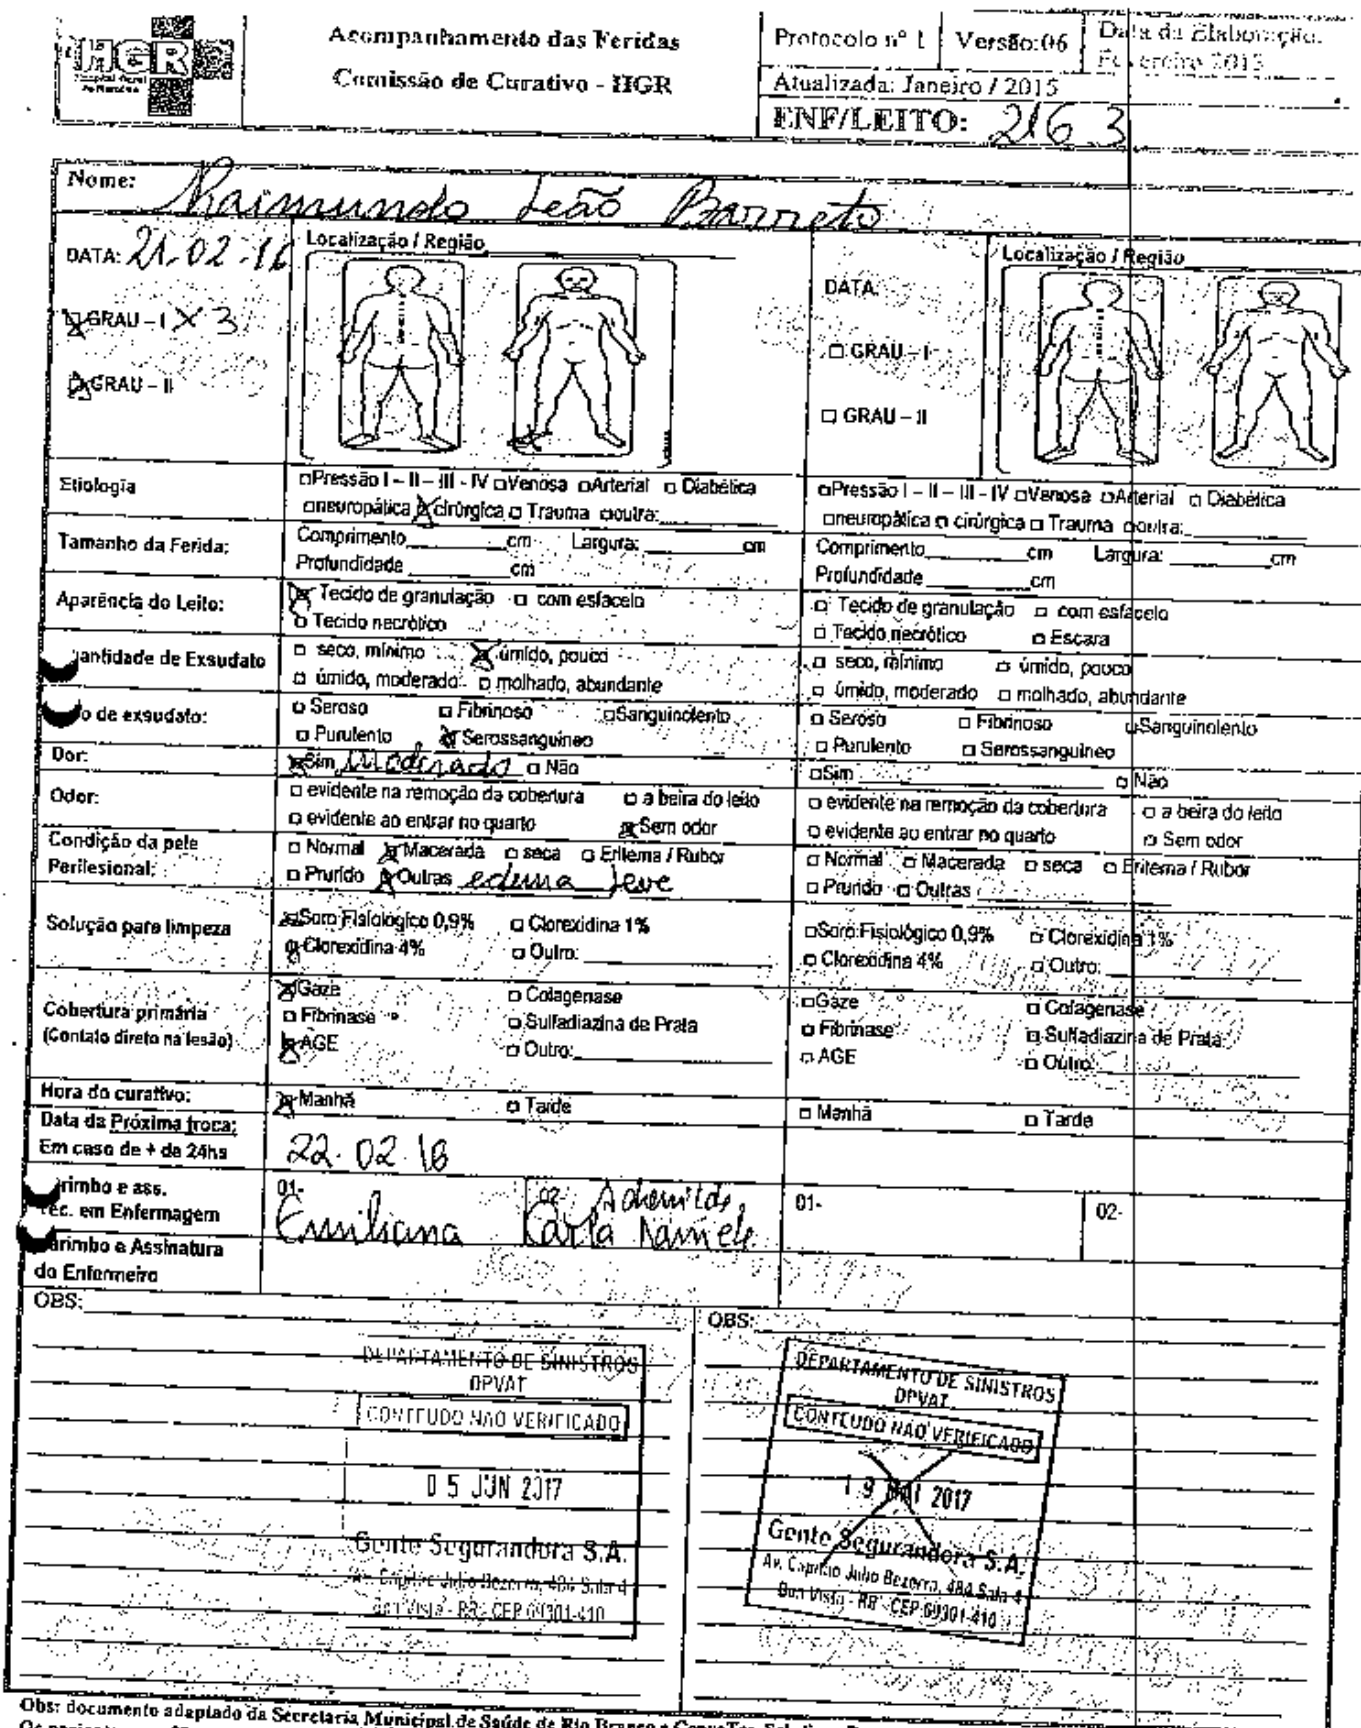 HGR
Hospital Geral
Acompanhamento das Feridas
Comissão de Curativo - HGR
Protocolo nº 1 Versão:06 Data da Elaboração:
Fevereiro 2013
Atualizada: Janeiro / 2015
ENF/LEITO: 216 3
Nome: Raimundo Leão Barreto
DATA: 21-02-16 Localização / Região
☒ GRAU – I X 3
☒ GRAU – II
DATA: Localização / Região
□ GRAU – I
□ GRAU – II
Etiologia
□Pressão I – II – III - IV □Venosa □Arterial □ Diabética
□neuropática ☒cirúrgica □ Trauma □outra:
□Pressão I – II – III - IV □Venosa □Arterial □ Diabética
□neuropática □ cirúrgica □ Trauma □outra:
Tamanho da Ferida:
Comprimento______cm Largura:______cm
Profundidade______cm
Comprimento______cm Largura:______cm
Profundidade______cm
Aparência do Leito:
☒ Tecido de granulação □ com esfacelo
□ Tecido necrótico
□ Tecido de granulação □ com esfacelo
□ Tecido necrótico □ Escara
uantidade de Exsudato
□ seco, mínimo ☒ úmido, pouco
□ úmido, moderado □ molhado, abundante
□ seco, mínimo □ úmido, pouco
□ úmido, moderado □ molhado, abundante
o de exsudato:
□ Seroso □ Fibrinoso □Sanguinolento
□ Purulento ☒ Serossanguíneo
□ Seroso □ Fibrinoso □Sanguinolento
□ Purulento □ Serossanguíneo
Dor:
☒Sim moderado □ Não
□Sim □ Não
Odor:
□ evidente na remoção da cobertura □ a beira do leito
□ evidente ao entrar no quarto ☒ Sem odor
□ evidente na remoção da cobertura □ a beira do leito
□ evidente ao entrar no quarto □ Sem odor
Condição da pele
Perilesional:
□ Normal ☒ Macerada □ seca □ Eritema / Rubor
□ Prurido ☒ Outras edema leve
□ Normal □ Macerada □ seca □ Eritema / Rubor
□ Prurido □ Outras
Solução para limpeza
☒Soro Fisiológico 0,9% □ Clorexidina 1%
☒ Clorexidina 4% □ Outro:
□Soro Fisiológico 0,9% □ Clorexidina 1%
□ Clorexidina 4% □ Outro:
Cobertura primária
(Contato direto na lesão)
☒Gaze □ Colagenase
□ Fibrinase □ Sulfadiazina de Prata
☒ AGE □ Outro:
□Gaze □ Colagenase
□ Fibrinase □ Sulfadiazina de Prata
□ AGE □ Outro:
Hora do curativo:
☒ Manhã □ Tarde
□ Manhã □ Tarde
Data da Próxima troca:
Em caso de + de 24hs
22.02.16
arimbo e ass.
Téc. em Enfermagem
01- Emiliana
02- Ademilde
Carla Daniele
01-
02-
arimbo e Assinatura
do Enfermeiro
OBS:
OBS:
DEPARTAMENTO DE SINISTROS
DPVAT
CONTEUDO NAO VERIFICADO
05 JUN 2017
Gente Segurandora S.A.
Av. Capitão Julio Bezerra, 484 Sala 4
Boa Vista - RR - CEP 69301-410
DEPARTAMENTO DE SINISTROS
DPVAT
CONTEUDO NAO VERIFICADO
19 MAI 2017
Gente Segurandora S.A.
Av. Capitão Julio Bezerra, 484 Sala 4
Boa Vista - RR - CEP 69301-410
Obs: documento adaptado da Secretaria Municipal de Saúde de Rio Branco